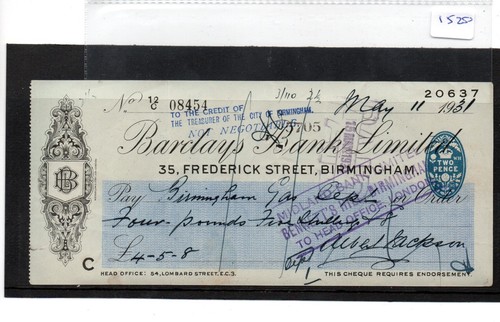 1520
No 12/C 08454
3/110
20637
May 11 1931
TO THE CREDIT OF
THE TREASURER OF THE CITY OF BIRMINGHAM.
NOT NEGOTIABLE
5705
Barclays Bank Limited
35, FREDERICK STREET, BIRMINGHAM,
TWO PENCE
Pay Birmingham Gas Dept or Order
MIDLAND BANK LIMITED
BENNETTS HILL BIRMINGHAM
TO HEAD OFFICE LONDON
Four pounds Five Shillings
£4-5-8
Albert Jackson
C
HEAD OFFICE: 54, LOMBARD STREET, E.C.3.
THIS CHEQUE REQUIRES ENDORSEMENT.